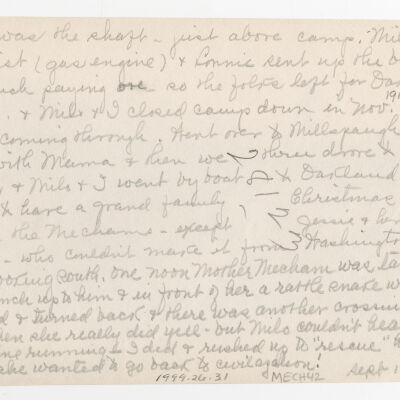 was the shaft - just above camp. Mil
ist (gas engine) & Connie sent up the
ch paying ore so the folks left for Da
191
. & Milo & I closed camp down in Nov.
coming through. Went over to Millspaugh
ith Mama & then we three drove
, & Milo & I went by boat to Oakland
& have a grand family Christmas
the Mechams - except Jessie & her
- who couldn't make it from Washington
ooking South. One noon Mother Mecham was ta
nch up to him & in front of her a rattle snake w
d & turned back & there was another crossin
hen she really did yell - but Milo couldn't hea
ine running & I did & rushed up to "rescue"
she wanted to go back to civilazation!
Sept 1
1999.26.31
MECH42